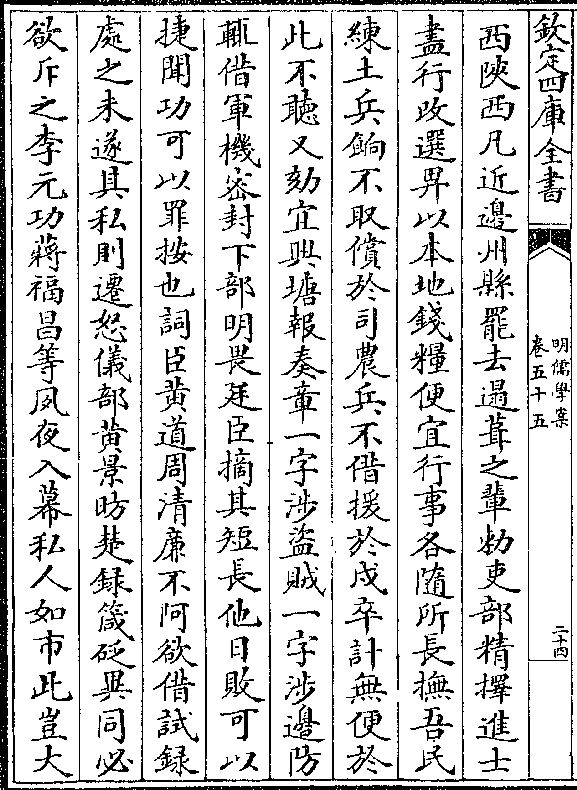 欽定四庫全書
明儒學案
卷五十五
二十四
西陝西凡近邊州縣罷去遢葺之輩勑吏部精擇進士
盡行改選畀以本地錢糧便宜行事各隨所長撫吾民
練土兵餉不取償於司農兵不借援於戍卒計無便於
此不聽又劾宜興塘報奏章一字涉盜賊一字涉邊防
輒借軍機密封下部明畏廷臣摘其短長他日敗可以
捷聞功可以罪按也詞臣黄道周清廉不阿欲借試録
處之未遂其私則遷怒儀部黄景昉楚録箴砭異同必
欲斥之李元功蔣福昌等夙夜入幕私人如市此豈大